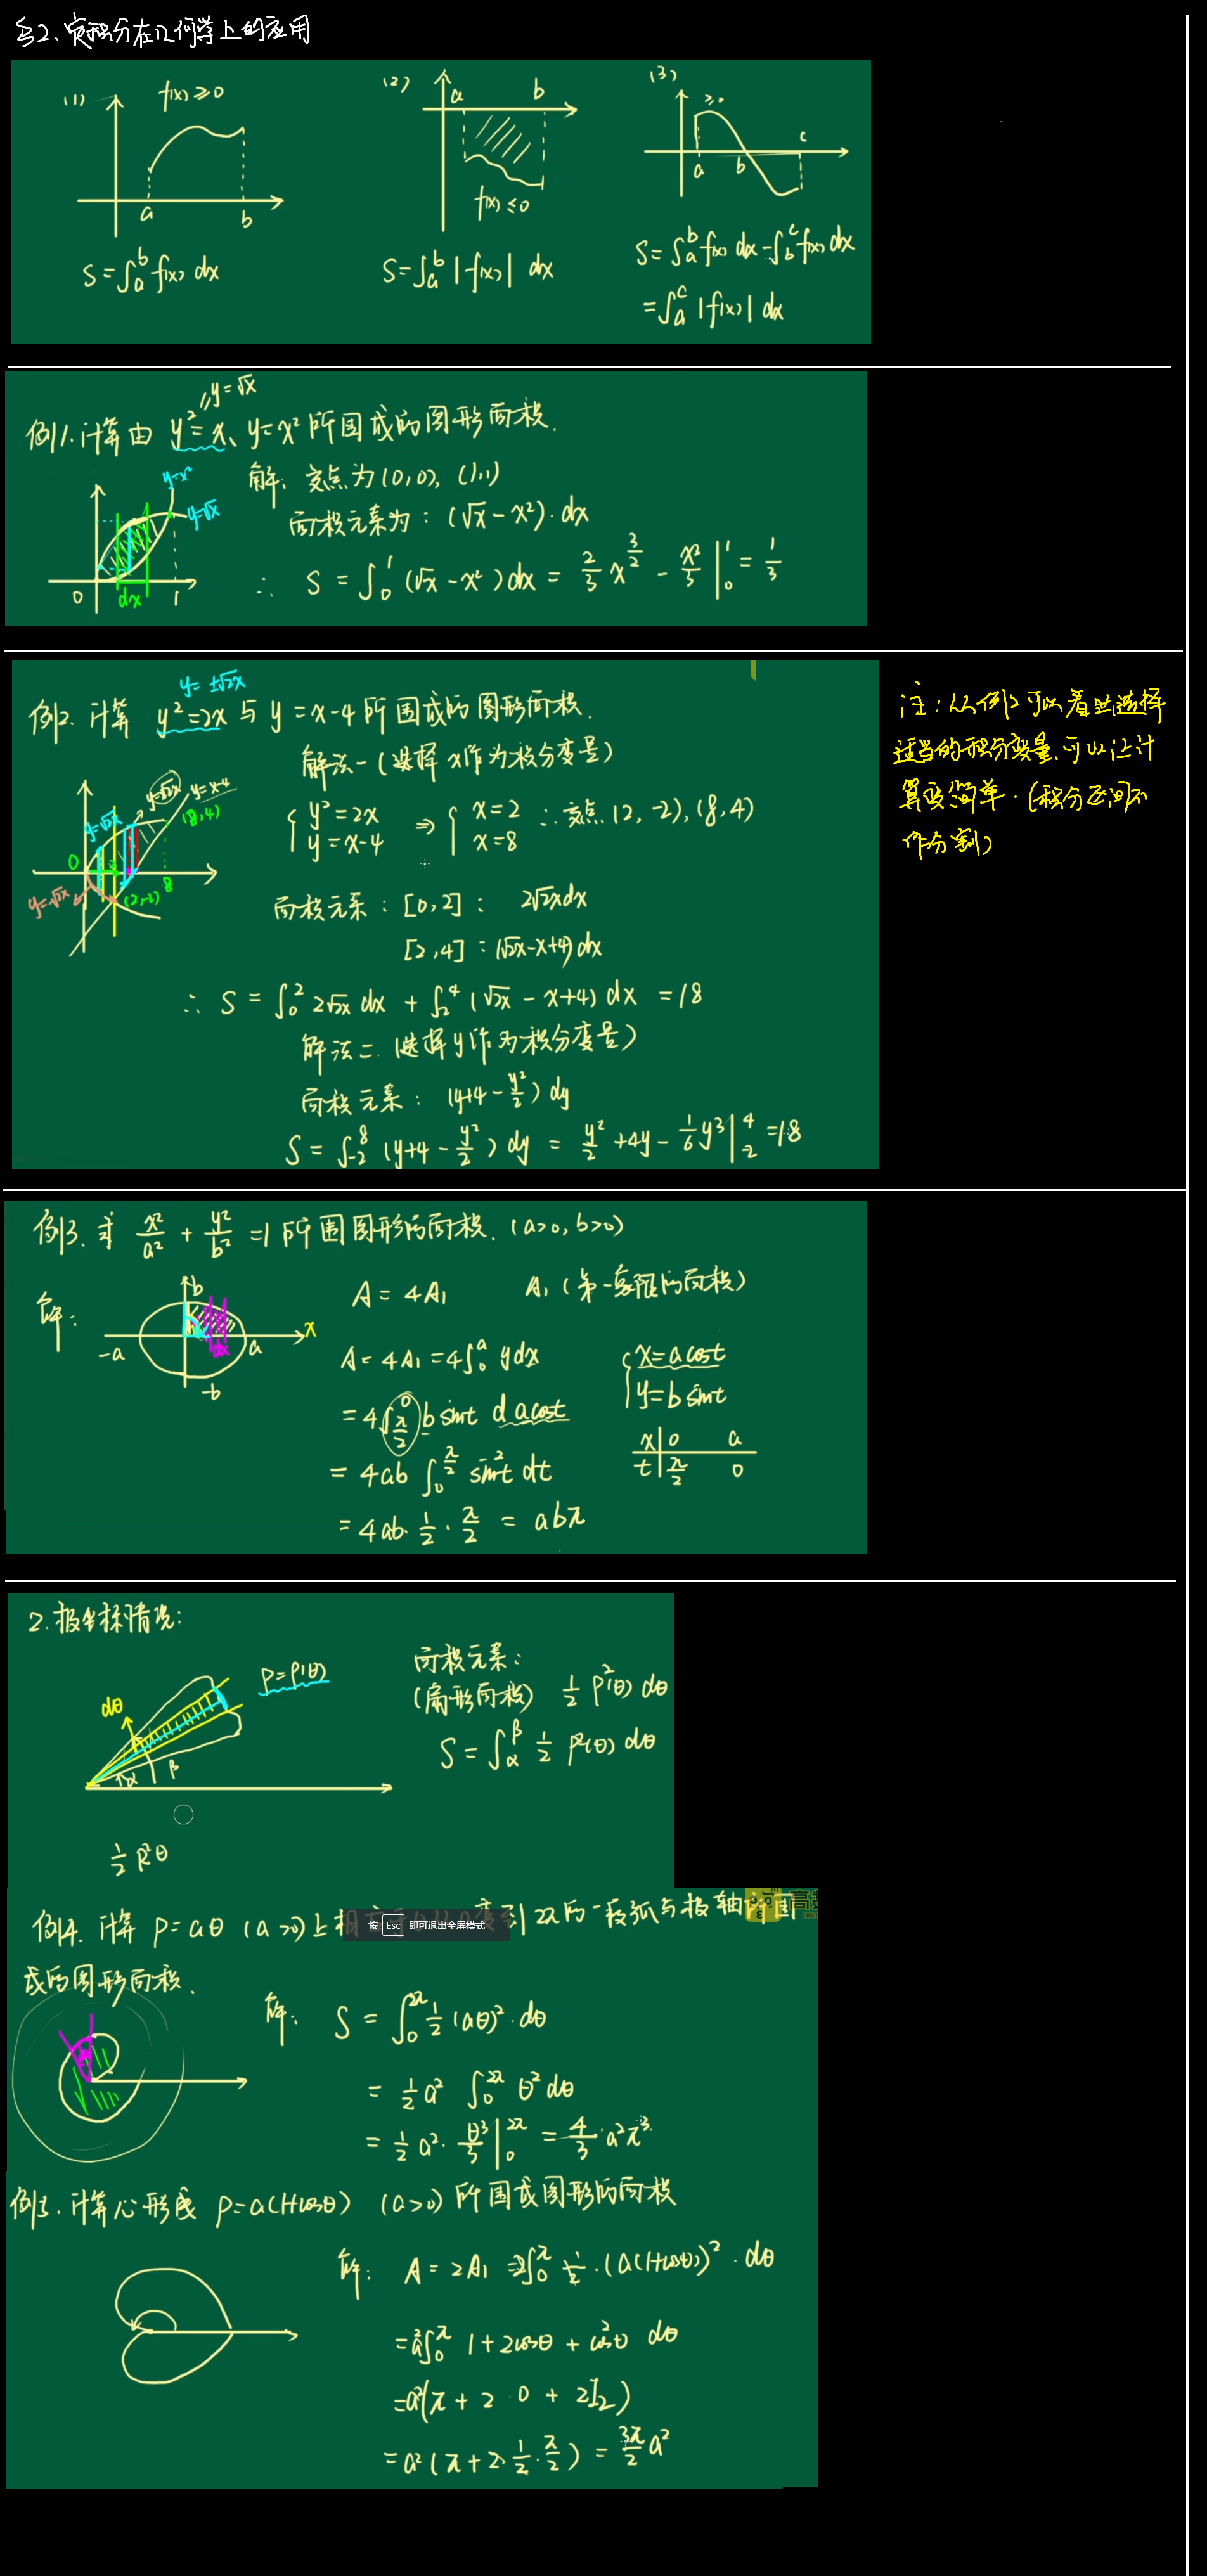 §2. 定积分在几何学上的应用
(1) f(x)≥0
a b
S=∫_a^b f(x) dx
(2) a b
f(x)≤0
S=∫_a^b |f(x)| dx
(3) ≥0
a b c
S=∫_a^b f(x) dx -∫_b^c f(x) dx
=∫_a^c |f(x)| dx
y=√x
例1.计算由 y²=x、y=x² 所围成的图形面积.
y=x²
y=√x
0 dx 1
解: 交点为(0,0), (1,1)
面积元素为: (√x-x²)·dx
∴ S=∫_0^1 (√x-x²)dx = 2/3 x^(3/2) - x²/3 |_0^1 = 1/3
y=±√2x
例2. 计算 y²=2x 与 y=x-4 所围成的图形面积.
解法一(选择x作为积分变量)
y=√2x y=x-4
(8,4)
y=√2x
0 8
y=-√2x (2,-2)
{ y²=2x y=x-4 ⇒ { x=2 x=8 ∴交点(2,-2),(8,4)
面积元素: [0,2]: 2√2x dx
[2,4]: (√2x-x+4) dx
∴ S=∫_0^2 2√2x dx + ∫_2^4 (√2x-x+4) dx =18
解法二.(选择y作为积分变量)
面积元素: (y+4-y²/2) dy
S=∫_-2^8 (y+4-y²/2) dy = y²/2+4y-1/6 y³|_2^4=18
注:从例2可以看出选择
适当的积分变量,可以让计
算更简单.(积分区间不
作分割)
例3. 求 x²/a² + y²/b² =1 所围图形的面积. (a>0, b>0)
解:
b
-a a x
dx
-b
A=4A₁ A₁(第一象限的面积)
A=4A₁=4∫_0^a ydx
{ x=acost
y=bsint
=4∫_(π/2)^0 b sint d acost
x 0 a
t π/2 0
=4ab ∫_0^(π/2) sin²t dt
=4ab·1/2·π/2 = abπ
2.极坐标情况:
ρ=ρ(θ)
dθ
α β
1/2 R²θ
面积元素:
(扇形面积) 1/2 ρ²(θ) dθ
S=∫_α^β 1/2 ρ²(θ) dθ
按 Esc 即可退出全屏模式
例4. 计算 ρ=aθ (a>0)上 2π的一段弧与极轴所围
成的图形面积.
解: S=∫_0^2π 1/2 (aθ)²·dθ
=1/2 a² ∫_0^2π θ² dθ
=1/2 a²·θ³/3|_0^2π = 4/3·a²π³
例5.计算心形线 ρ=a(1+cosθ) (a>0)所围成图形的面积
解: A=2A₁=2∫_0^π 1/2·(a(1+cosθ))²·dθ
=a²∫_0^π 1+2cosθ+cos²θ dθ
=a²(π+2·0+2I₂)
=a²(π+2·1/2·π/2) = 3π/2 a²